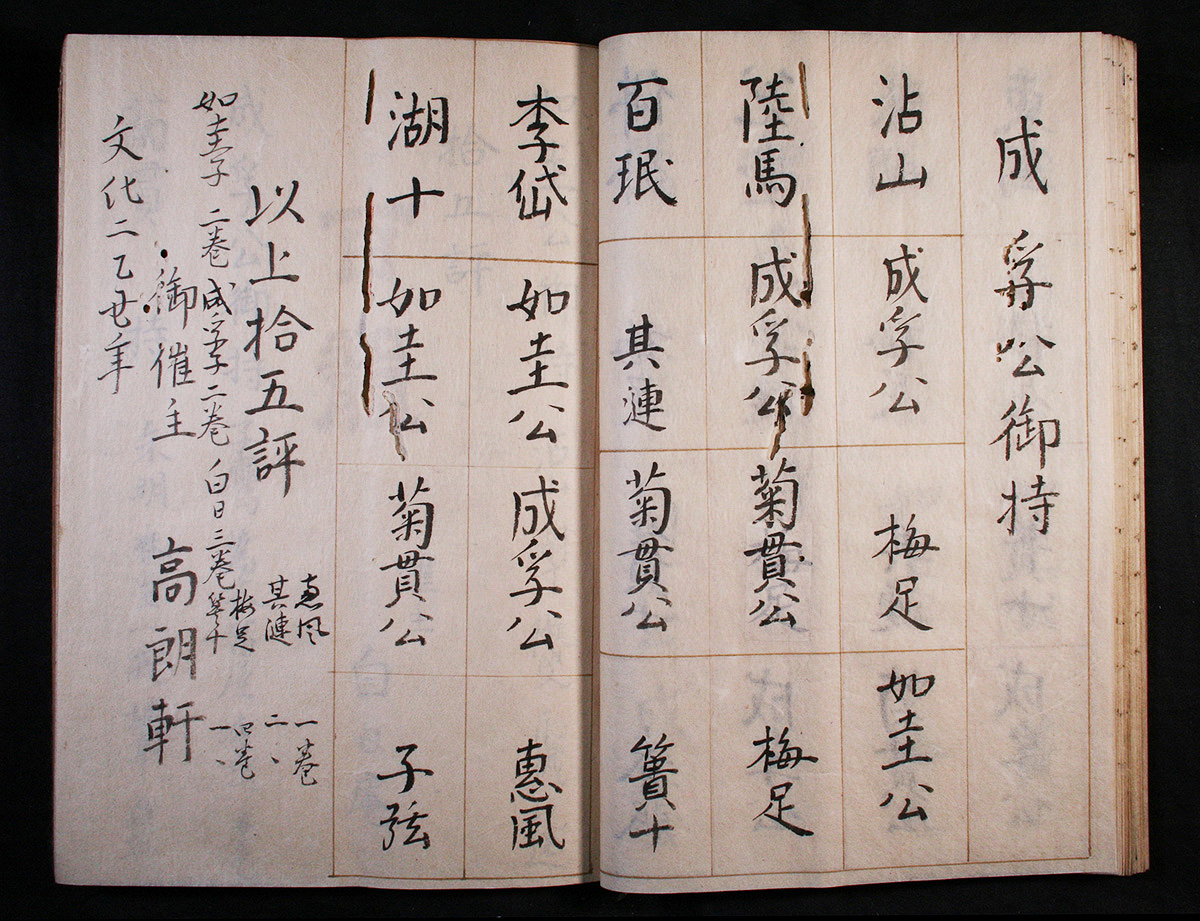 成孚公御持
沾山 成孚公 梅足 如圭公
陸馬 成孚公 菊貫公 梅足
百珉 其漣 菊貫公 簣十
李岱 如圭公 成孚公 惠風
湖十 如圭公 菊貫公 子弦
以上拾五評
如圭子 二巻 成孚子 二巻 白日 三巻
惠風 一巻
其漣 二、
梅足 四巻
簣十 一、
御催主 高朗軒
文化二乙丑年